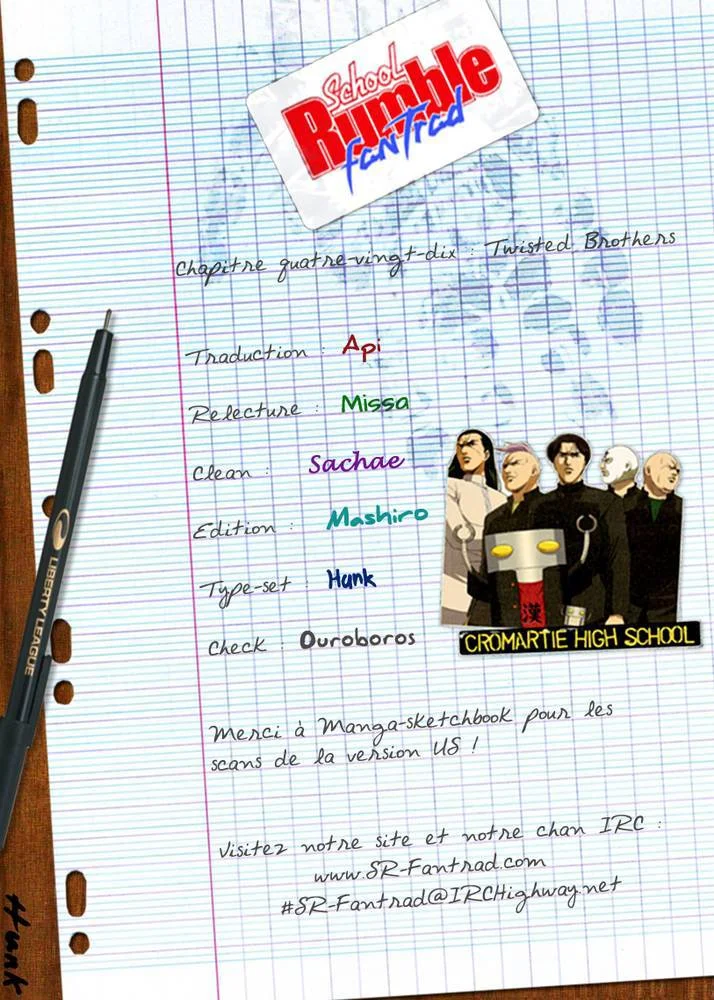 School
Rumble
fanTrad
Chapitre quatre-vingt-dix : Twisted Brothers
Traduction : Api
Relecture : Missa
Clean : Sachae
Edition : Mashiro
Type-set : Hunk
Check : Ouroboros
漢
CROMARTIE HIGH SCHOOL
LIBERTY LEAGUE
Merci à Manga-sketchbook pour les
scans de la version US !
Visitez notre site et notre chan IRC :
www.SR-Fantrad.com
#SR-Fantrad@IRCHighway.net
Hunk